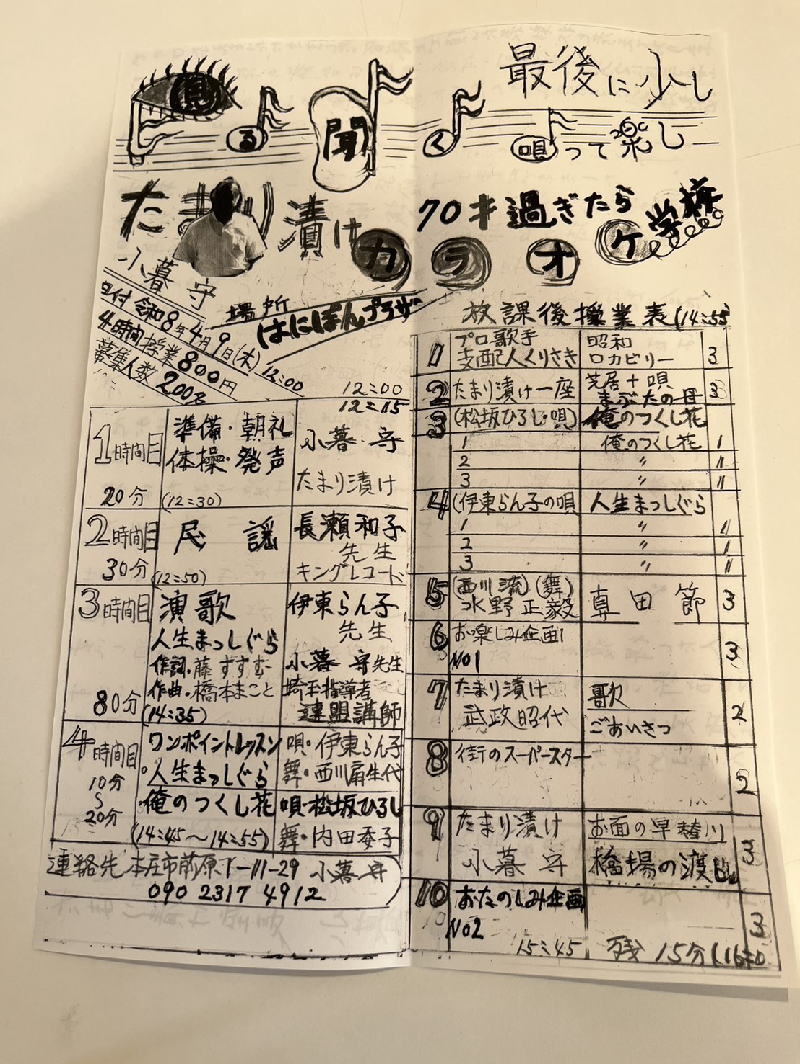 見る聞く唄って楽し
最後に少し
たまり漬け
小暮 守
70才過ぎたら
カラオケ学校
日付 令和8年4月9日(木) 12:00
4時間授業 800円
募集人数 200名
場所 はにぽんプラザ
12:00
12:15
1時間目 準備・朝礼 小暮 守
体操・発声 たまり漬け
20分 (12:30)
2時間目 民 謡 長瀬和子
先生
30分 (12:50) キングレコード
3時間目 演歌 伊東らん子
人生まっしぐら 先生
作詞・藤すすむ 小暮 守先生
作曲・橋本まこと 埼玉指導者
80分 (14:35) 連盟講師
4時間目 ワンポイントレッスン 唄・伊東らん子
10分 ・人生まっしぐら 舞・西川扇生代
〜
20分 ・俺のつくし花 唄・松坂ひろし
(14:45〜14:55) 舞・内田委子
連絡先 本庄市前原1-11-29 小暮 守
090 2317 4912
放課後授業表(14:55
1 プロ歌手 昭和 3
支配人くりさき ロカビリー
2 たまり漬け一座 芝居+唄 3
まぶたの母
3 (松坂ひろし・唄) 俺のつくし花
1 俺のつくし花 1
2 〃 〃
3 〃 〃
4 (伊東らん子の唄 人生まっしぐら
1 〃 〃
2 〃 〃
3 〃 〃
5 (西川流)(舞) 真田節 3
水野正毅
6 お楽しみ企画 3
No1
7 たまり漬け 歌 2
武政昭代 ごあいさつ
8 街のスーパースター 2
9 たまり漬け お面の早替り 3
小暮 守 橋場の渡し
10 おたのしみ企画 3
No2
15:45 残 15分